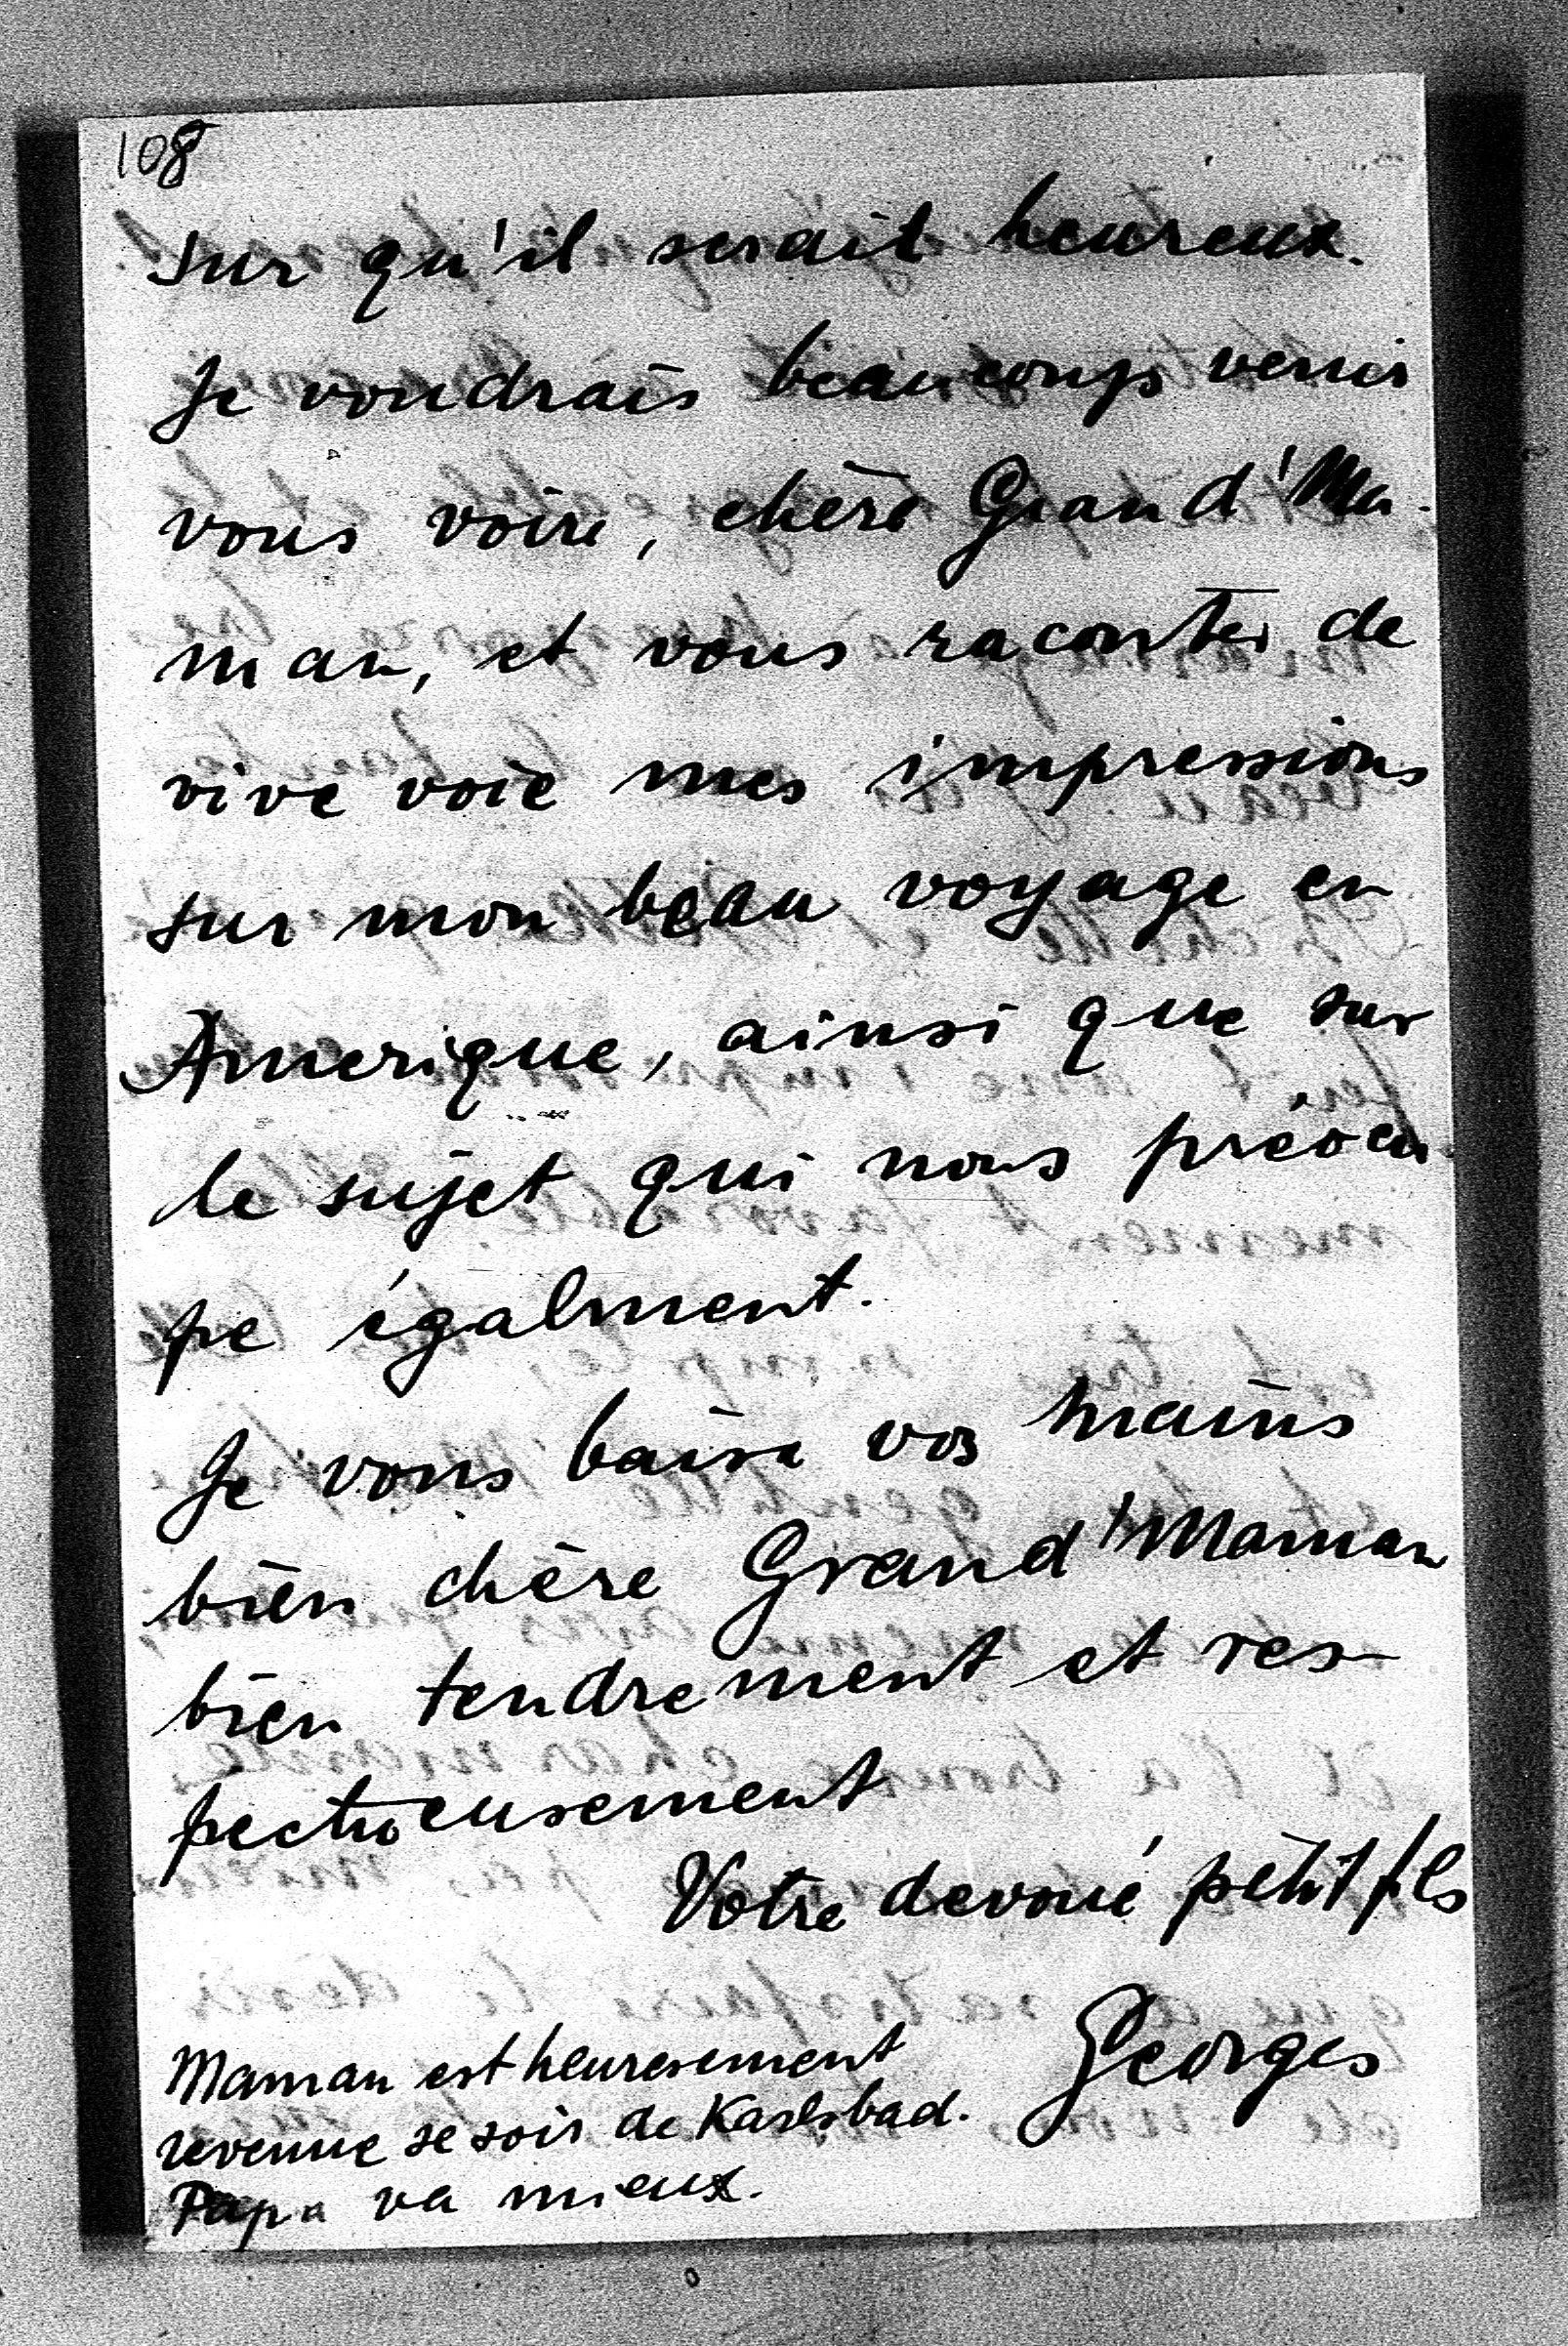 108
sur qu'il serait heureux.
Je voudrais beaucoup venir
vous voire, chère Grand'Ma-
man, et vous raconter de
vive voie mes impressions
sur mon beau voyage en
Amerique, ainsi que sur
le sujet qui nous préocu-
pe égalment.
Je vous baise vos mains
bien chère Grand'Maman
bien tendrement et res-
pectueusement
Votre devoué petit fils
Georges
Maman est heuresement
revenue se soir de Karlsbad.
Papa va mieux.